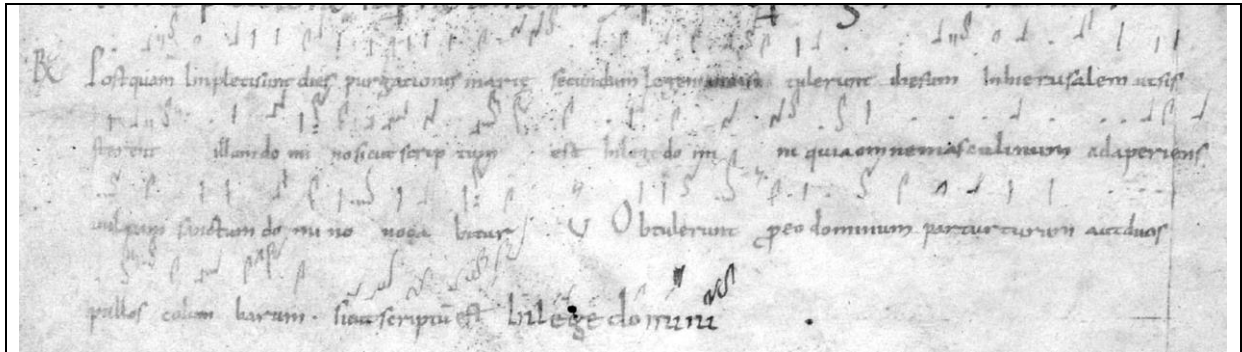 R Postquam Impleti sunt dies purgationis marie secundum legem moisi tulerunt ihesum In hierusalem ut sis
terent illum do mi no sicut scrip tum est In lege do mi ni quia omne masculinum adaperiens
vulvam sanctum do mi no voca bitur V Obtulerunt pro eo dominum par turturum aut duos
pullos colum barum sicut scriptū est In lege domini